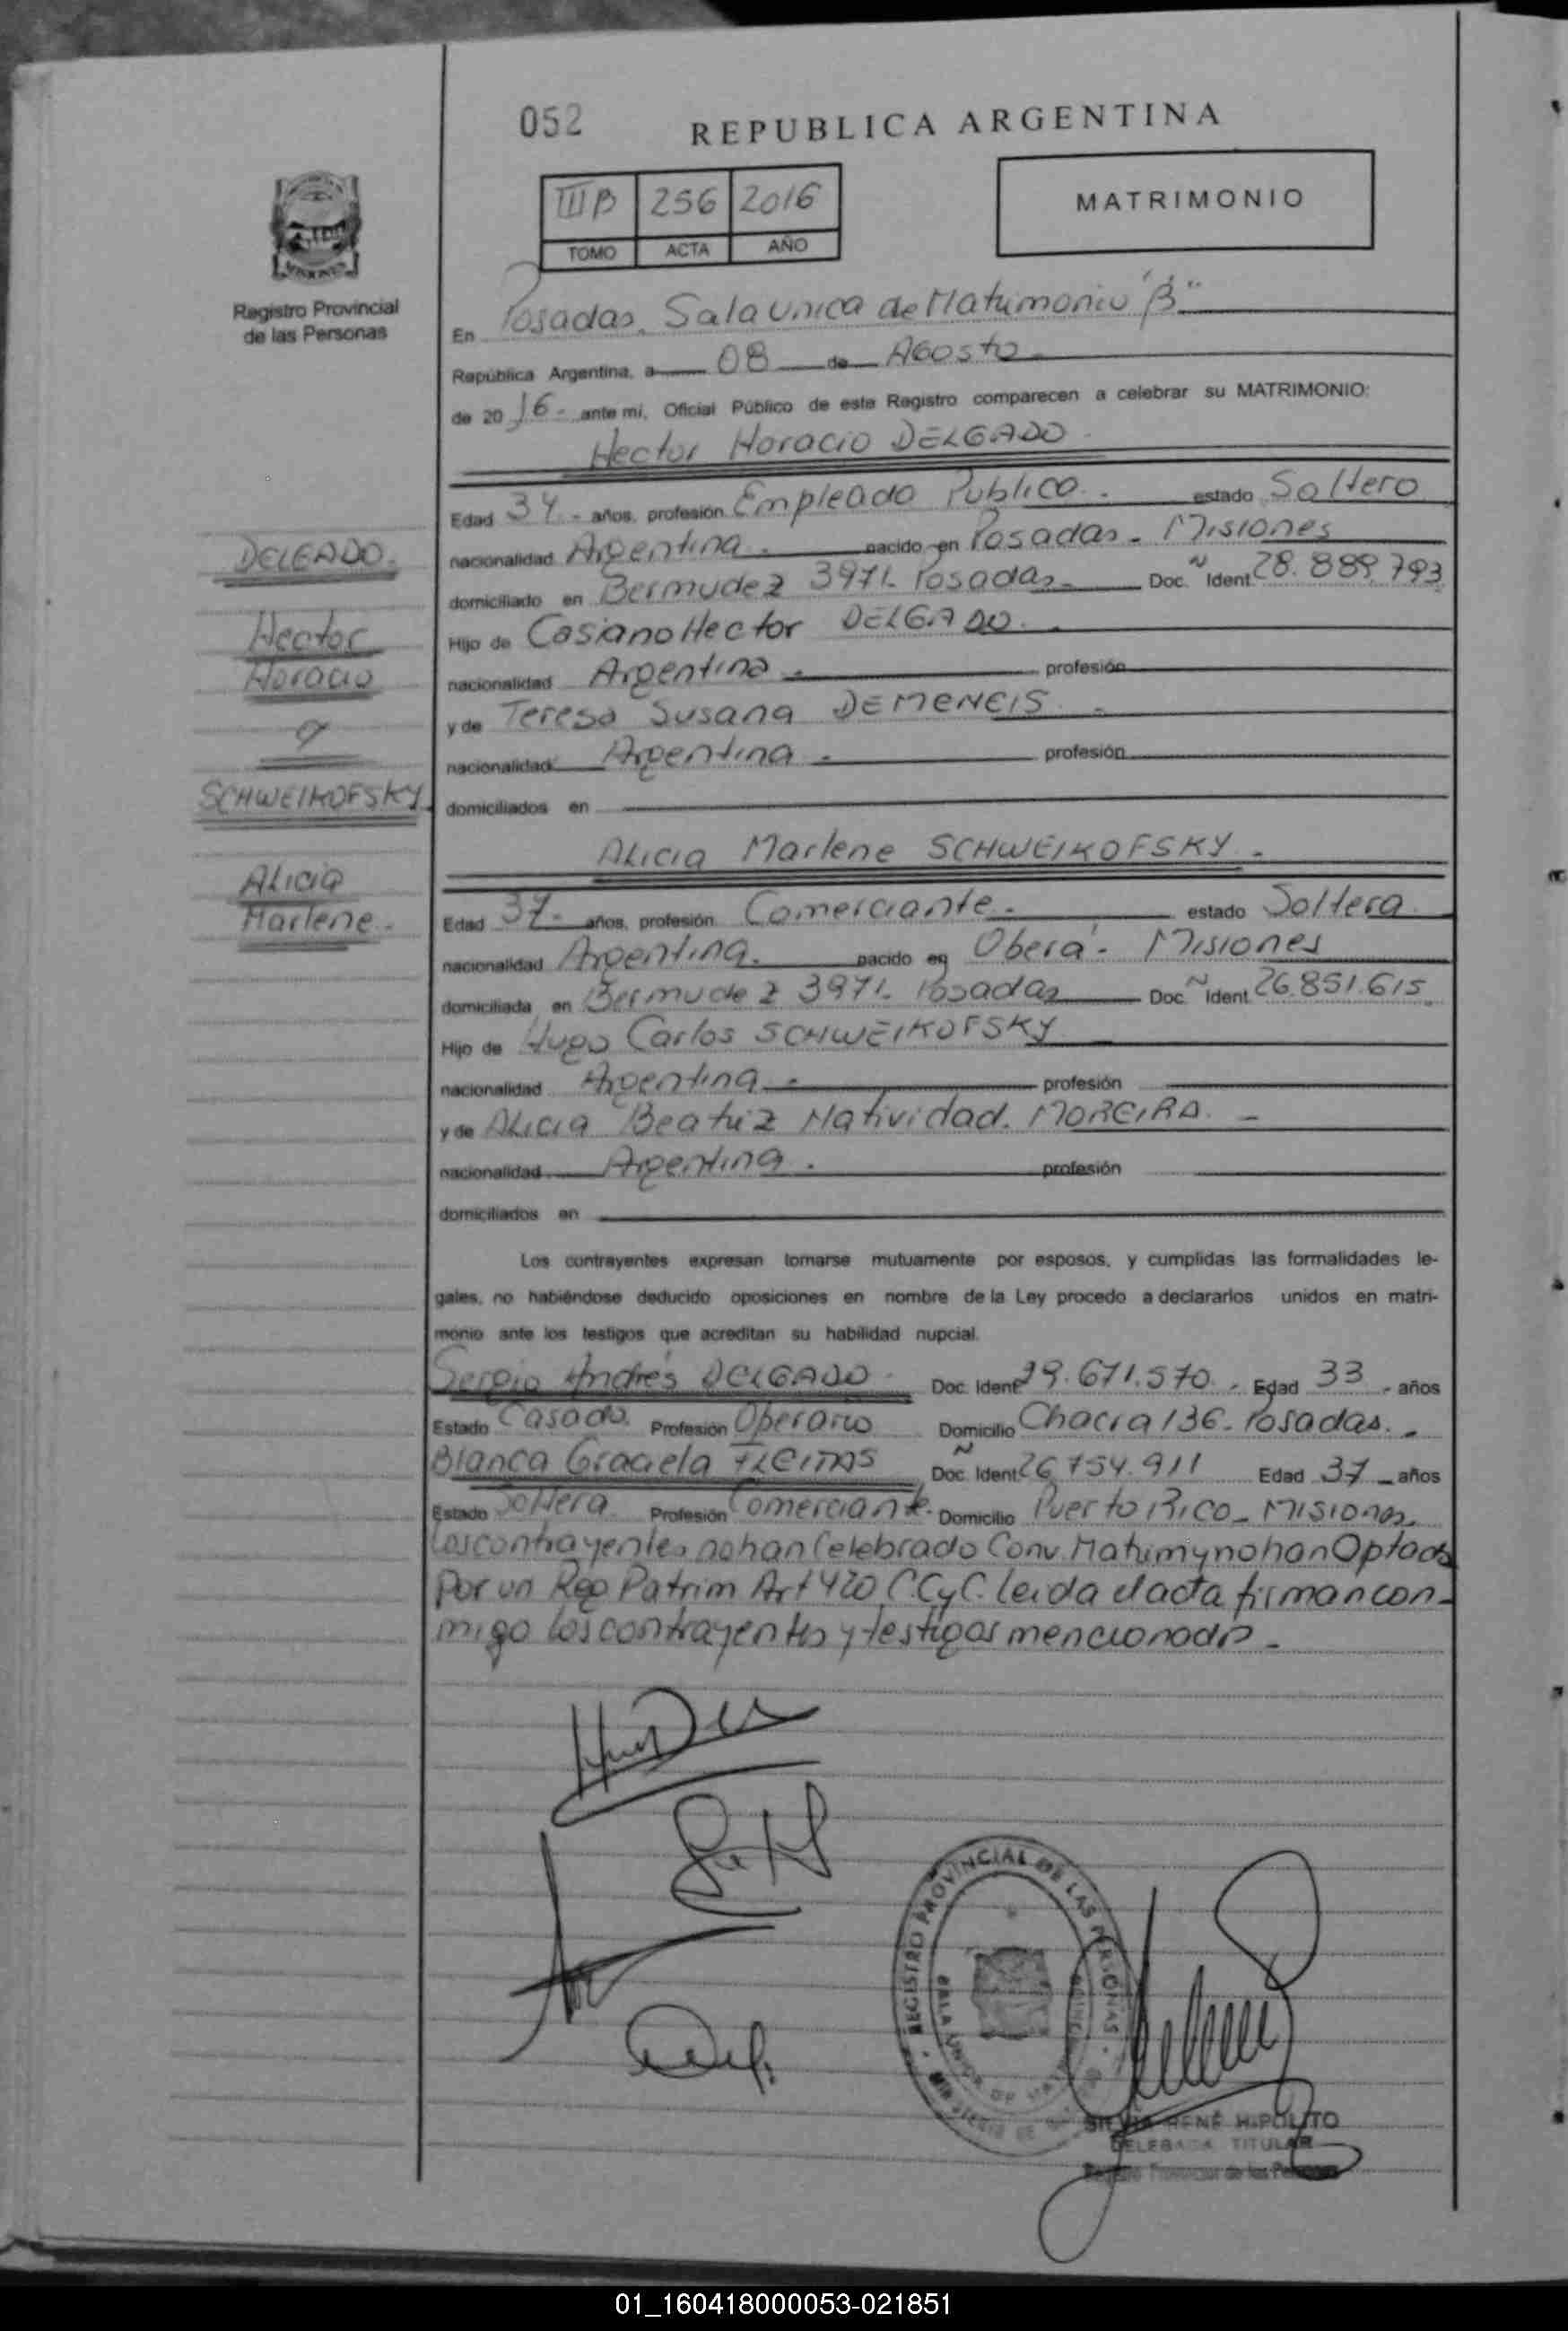 052
REPUBLICA ARGENTINA
III B 256 2016
TOMO ACTA AÑO
MATRIMONIO
MISIONES
Registro Provincial
de las Personas
En Posadas, Sala Unica de Matrimonio "B"
República Argentina, a 08 de Agosto
de 20 16 - ante mí, Oficial Público de este Registro comparecen a celebrar su MATRIMONIO:
Hector Horacio DELGADO
Edad 34 - años, profesión Empleado Publico. estado Soltero
nacionalidad Argentina. nacido en Posadas - Misiones
domiciliado en Bermudez 3971- Posadas Doc. Ident. 28.889.793
Hijo de Casiano Hector DELGADO.
nacionalidad Argentina - profesión
y de Teresa Susana DEMENEIS -
nacionalidad Argentina - profesión
domiciliados en
DELGADO.
Hector
Horacio
y
SCHWEIKOFSKY
Alicia
Marlene -
Alicia Marlene SCHWEIKOFSKY -
Edad 37- años, profesión Comerciante. estado Soltera
nacionalidad Argentina. nacido en Oberá - Misiones
domiciliada en Bermudez 3971- Posadas Doc. Ident. 26.851.615
Hijo de Hugo Carlos SCHWEIKOFSKY
nacionalidad Argentina - profesión
y de Alicia Beatriz Natividad. MOREIRA. -
nacionalidad Argentina. profesión
domiciliados en
Los contrayentes expresan tomarse mutuamente por esposos, y cumplidas las formalidades le-
gales, no habiéndose deducido oposiciones en nombre de la Ley procedo a declararlos unidos en matri-
monio ante los testigos que acreditan su habilidad nupcial.
Sergio Andrés DELGADO Doc. Ident. 29.671.570. Edad 33 - años
Estado Casado. Profesión Operario Domicilio Chacra 136- Posadas. -
Blanca Graciela FLEITAS Doc. Ident. 26.754.911 Edad 37 - años
Estado Soltera Profesión Comerciante. Domicilio Puerto Rico - Misiones.
Los contrayentes no han Celebrado Conv. Matrim y no han Optado
Por un Reg. Patrim Art 420 C.C y C. leida el acta firman con-
migo los contrayentes y testigos mencionados -
REGISTRO PROVINCIAL DE LAS PERSONAS
SALA UNICA DE
SILVIA RENÉ HIPOLITO
DELEGADA TITULAR
Registro Provincial de las Personas
01_160418000053-021851